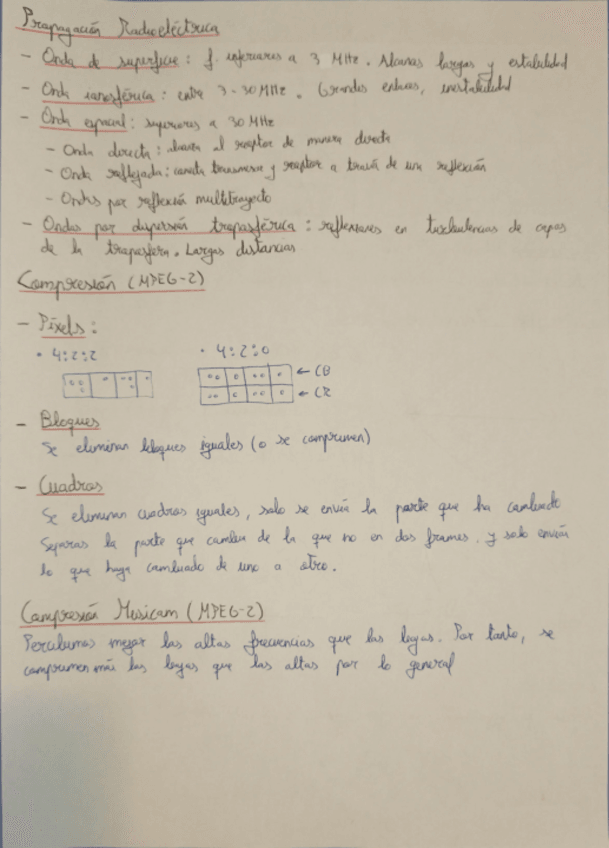 Propagación Radioeléctrica
- Onda de superficie: f. inferiores a 3 MHz. Alcances largos y estabilidad
- Onda ionosférica: entre 3-30 MHz. Grandes enlaces, inestabilidad
- Onda espacial: superiores a 30 MHz
- Onda directa: alcanza al receptor de manera directa
- Onda reflejada: conecta transmisor y receptor a través de una reflexión
- Ondas por reflexión multitrayecto
- Ondas por dispersión troposférica: reflexiones en turbulencias de capas
de la troposfera. Largas distancias
Compresión (MPEG-2)
- Píxels:
• 4:2:2
• 4:2:0
← CB
← CR
- Bloques
Se eliminan bloques iguales (o se comprimen)
- Cuadros
Se eliminan cuadros iguales, solo se envía la parte que ha cambiado
Separas la parte que cambia de la que no en dos frames. y solo envía
lo que haya cambiado de uno a otro.
Compresión Musicam (MPEG-2)
Percibimos mejor las altas frecuencias que las bajas. Por tanto, se
comprimen más las bajas que las altas por lo general